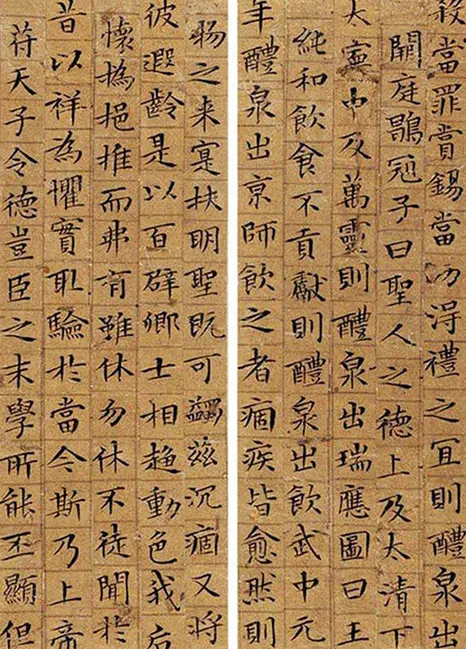 殺當罪賞錫當功得禮之宜則醴泉出
闕庭鶡冠子曰聖人之德上及太清下
大寧中及萬靈則醴泉出瑞應圖曰王
純和飲食不貢獻則醴泉出飲武中元
年醴泉出京師飲之者痼疾皆愈然則
物之来寔扶明聖既可蠲兹沉痼又将
彼遐齡是以百辟卿士相趍動色我后
懷撝挹推而弗有雖休勿休不徒聞於
昔以祥為懼實取驗於當今斯乃上帝
苻天子令德豈臣之末學所能丕顯但